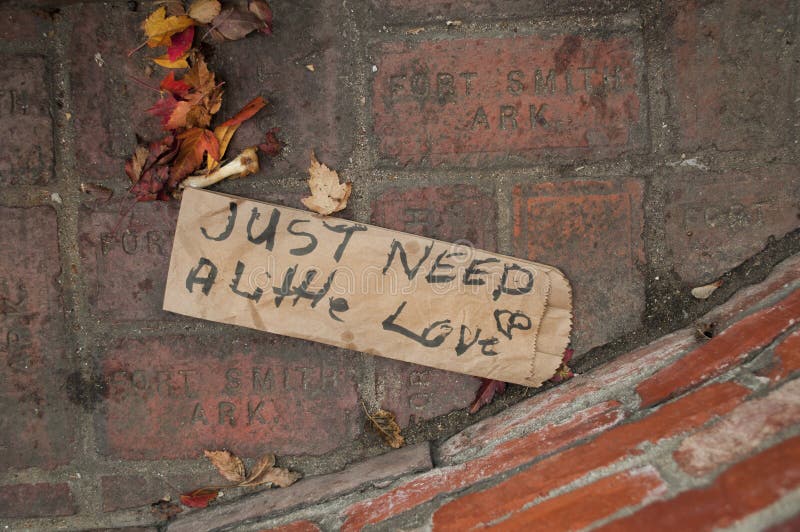 FORT SMITH
ARK
FORT
FORT
JUST NEED
A LittHe LOVE
FORT SMITH
ARK